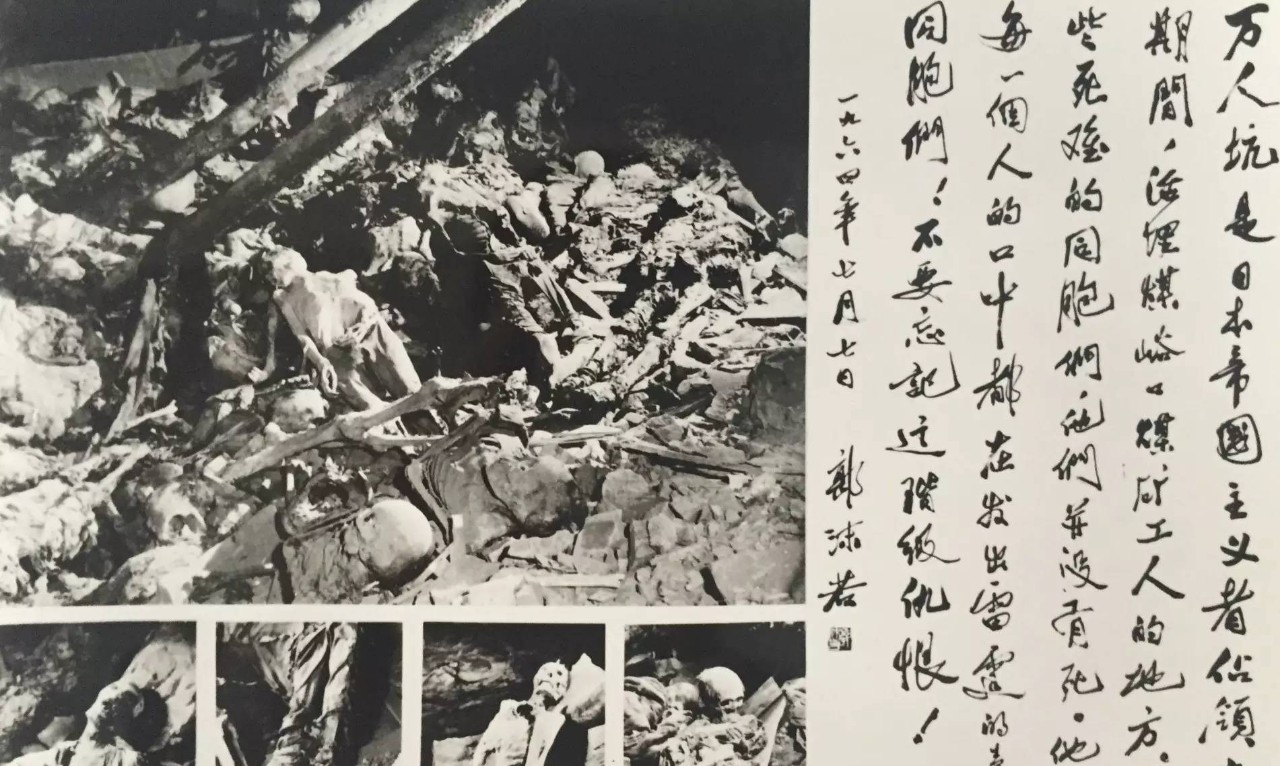 万人坑是日本帝國主义者佔領
期間，活埋煤峪口煤矿工人的地方。
些死难的同胞們，他們并没有死。他
每一個人的口中都在发出雷霆的
同胞們！不要忘記这階級仇恨！
一九六四年七月七日 郭沫若